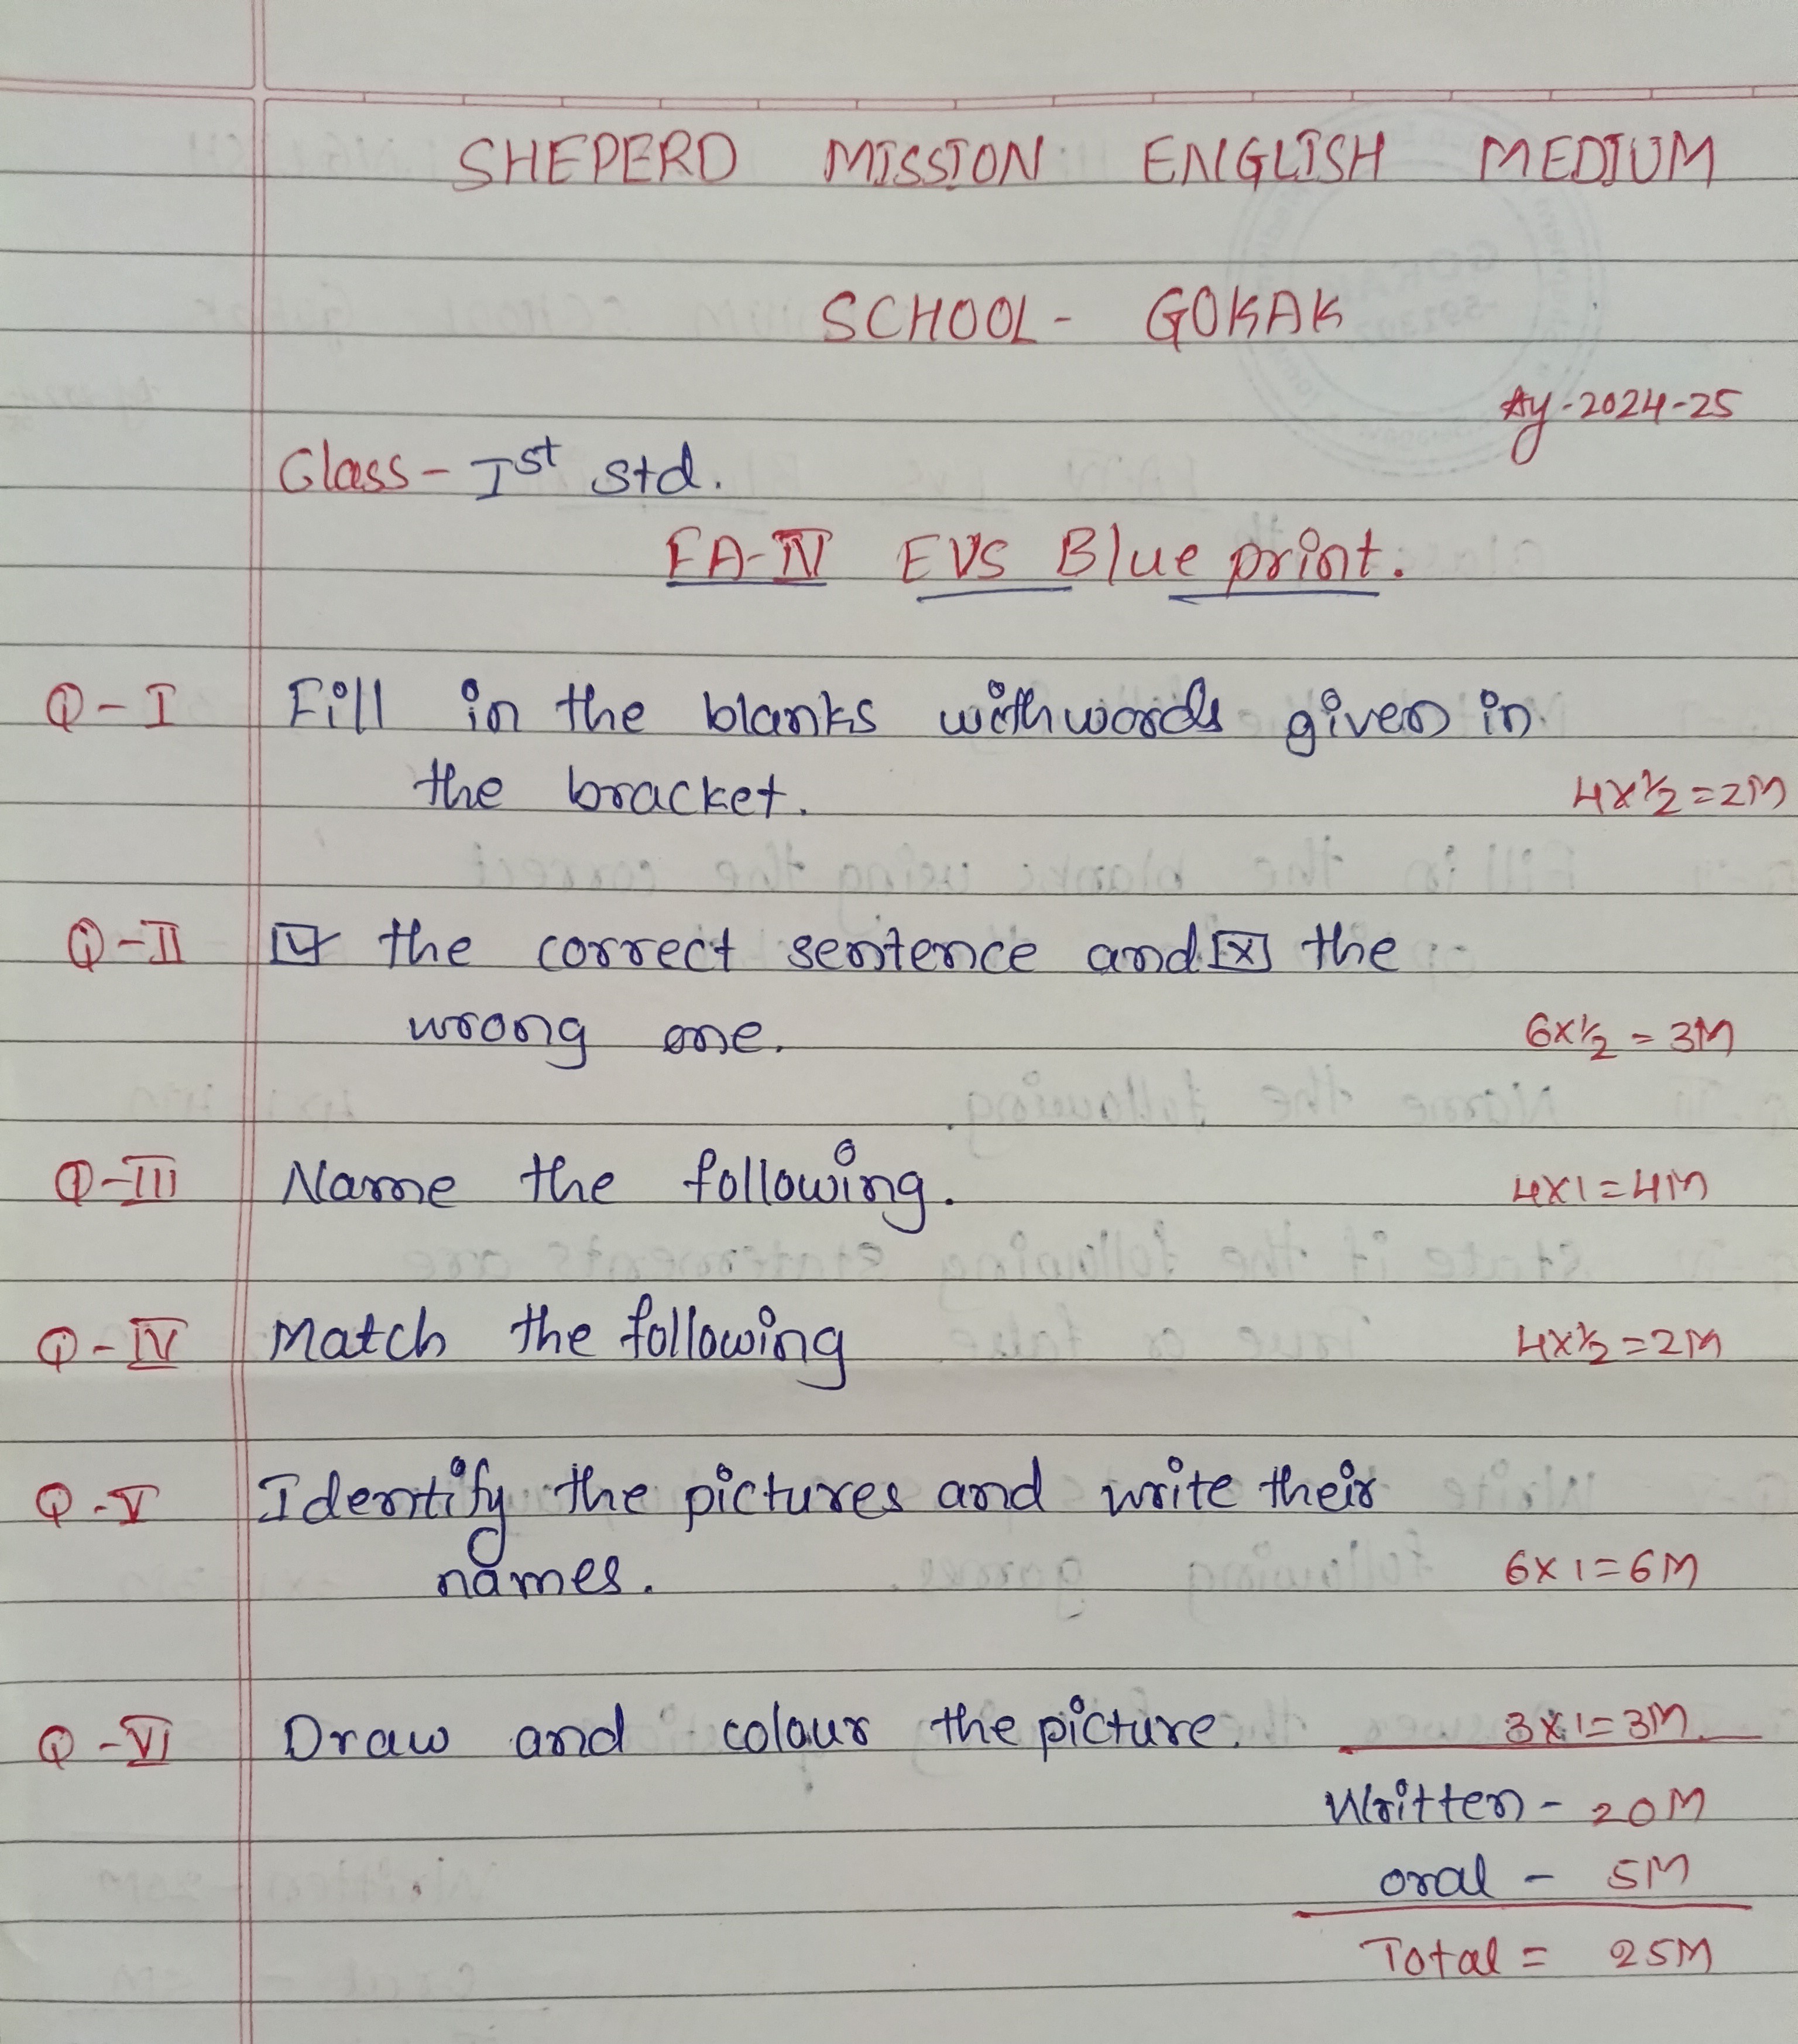 SHEPERD MISSION ENGLISH MEDIUM
SCHOOL - GOKAK
Ay-2024-25
Class - Ist std.
FA-IV EVS Blue print.
Q-I Fill in the blanks with words given in
the bracket. 4x½=2M
Q-II ☑ the correct sentence and ☒ the
wrong one. 6x½=3M
Q-III Name the following. 4x1=4M
Q-IV Match the following 4x½=2M
Q-V Identify the pictures and write their
names. 6x1=6M
Q-VI Draw and colour the picture. 3x1=3M
Written - 20M
oral - 5M
Total = 25M